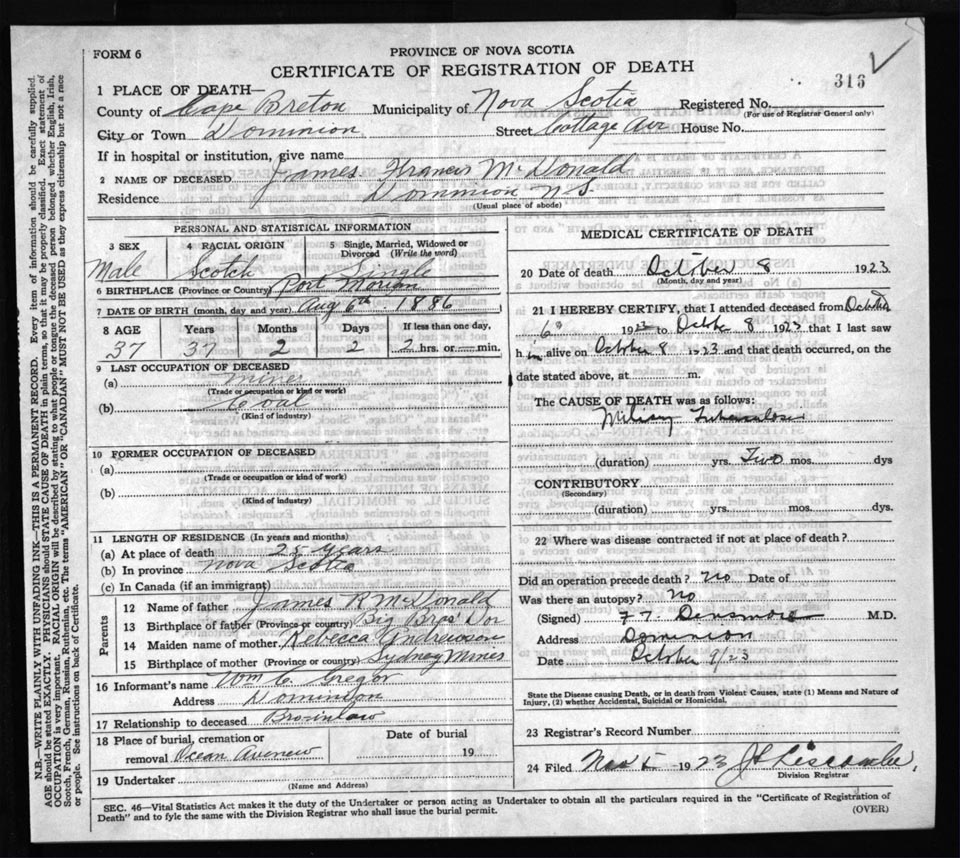 FORM 6
PROVINCE OF NOVA SCOTIA
CERTIFICATE OF REGISTRATION OF DEATH
316
1 PLACE OF DEATH—
County of Cape Breton Municipality of Nova Scotia Registered No.
(For use of Registrar General only)
City or Town Dominion Street Cottage Ave House No.
If in hospital or institution, give name
2 NAME OF DECEASED James Francis McDonald
Residence Dominion N.S.
(Usual place of abode)
PERSONAL AND STATISTICAL INFORMATION
3 SEX 4 RACIAL ORIGIN 5 Single, Married, Widowed or Divorced (Write the word)
Male Scotch Single
6 BIRTHPLACE (Province or Country) Port Morien
7 DATE OF BIRTH (month, day and year) Aug 6th 1886
8 AGE Years Months Days If less than one day.
37 37 2 2 2 hrs. or min.
9 LAST OCCUPATION OF DECEASED
(a)
(Trade or occupation or kind or work)
(b) Coal
(Kind of industry)
10 FORMER OCCUPATION OF DECEASED
(a)
(Trade or occupation or kind or work)
(b)
(Kind of industry)
11 LENGTH OF RESIDENCE (In years and months)
(a) At place of death 25 years
(b) In province Nova Scotia
(c) In Canada (if an immigrant)
Parents
12 Name of father James R McDonald
13 Birthplace of father (Province or country) Big Bras Dor
14 Maiden name of mother Rebecca
15 Birthplace of mother (Province or country) Sydney Mines
16 Informant's name Wm C. Gregor
Address Dominion
17 Relationship to deceased Bro in law
18 Place of burial, cremation or removal Ocean Avenew
Date of burial 19
19 Undertaker
(Name and Address)
MEDICAL CERTIFICATE OF DEATH
20 Date of death October 8 1923
(Month, day and year)
21 I HEREBY CERTIFY, that I attended deceased from October
6th 19 to Octobe 8 1923 that I last saw
him alive on October 8 1923 and that death occurred, on the
date stated above, at m.
The CAUSE OF DEATH was as follows:
Miliary Tuberculosis
(duration) yrs. Two mos. dys
CONTRIBUTORY
(Secondary)
(duration) yrs. mos. dys.
22 Where was disease contracted if not at place of death?
Did an operation precede death? no Date of
Was there an autopsy? no
(Signed) Densmore M.D.
Address Dominion
Date October 9/23
State the Disease causing Death, or in death from Violent Causes, state (1) Means and Nature of Injury, (2) whether Accidental, Suicidal or Homicidal.
23 Registrar's Record Number
24 Filed Nov 5 1923 Liscombe
Division Registrar
SEC. 46—Vital Statistics Act makes it the duty of the Undertaker or person acting as Undertaker to obtain all the particulars required in the "Certificate of Registration of
Death" and to fyle the same with the Division Registrar who shall issue the burial permit.
(OVER)
N.B.—WRITE PLAINLY WITH UNFADING INK—THIS IS A PERMANENT RECORD. Every item of information should be carefully supplied.
AGE should be stated EXACTLY. PHYSICIANS should STATE CAUSE OF DEATH in plain terms, so that it may be properly classified. Exact statement of
OCCUPATION is very important. RACIAL ORIGIN will be described by stating to what people or tongue the deceased person belonged whether English, Irish,
Scotch, French, German, Russian, Ruthenian, etc. The terms "AMERICAN" or "CANADIAN" MUST NOT BE USED as they express citizenship but not a race
or people. See instructions on back of Certificate.